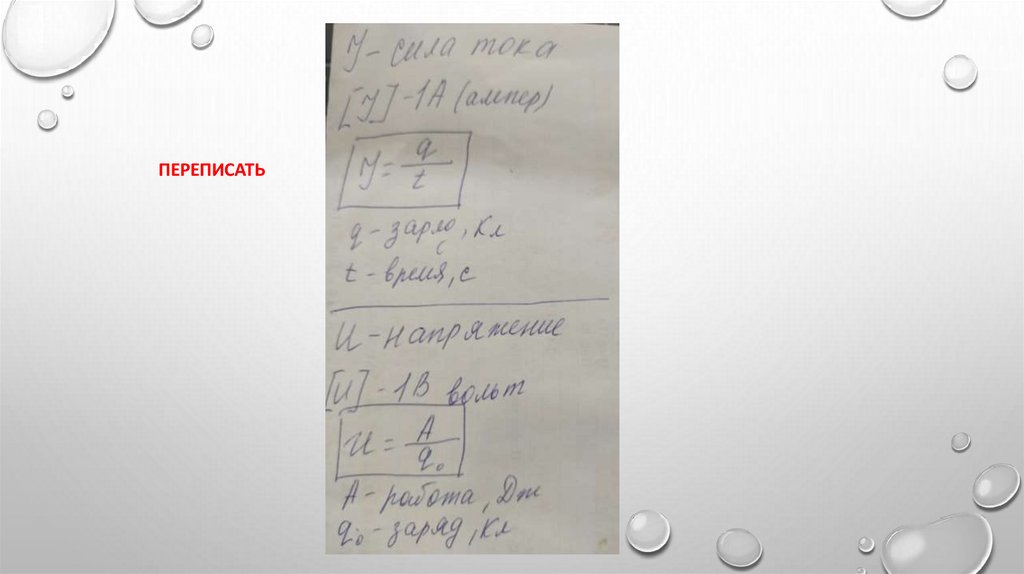 ПЕРЕПИСАТЬ
У – сила тока
[У] – 1А (ампер)
У = q/t
q – заряд, Кл
t – время, с
U – напряжение
[U] – 1В вольт
U = A/q₀
A – работа, Дж
q₀ – заряд, Кл